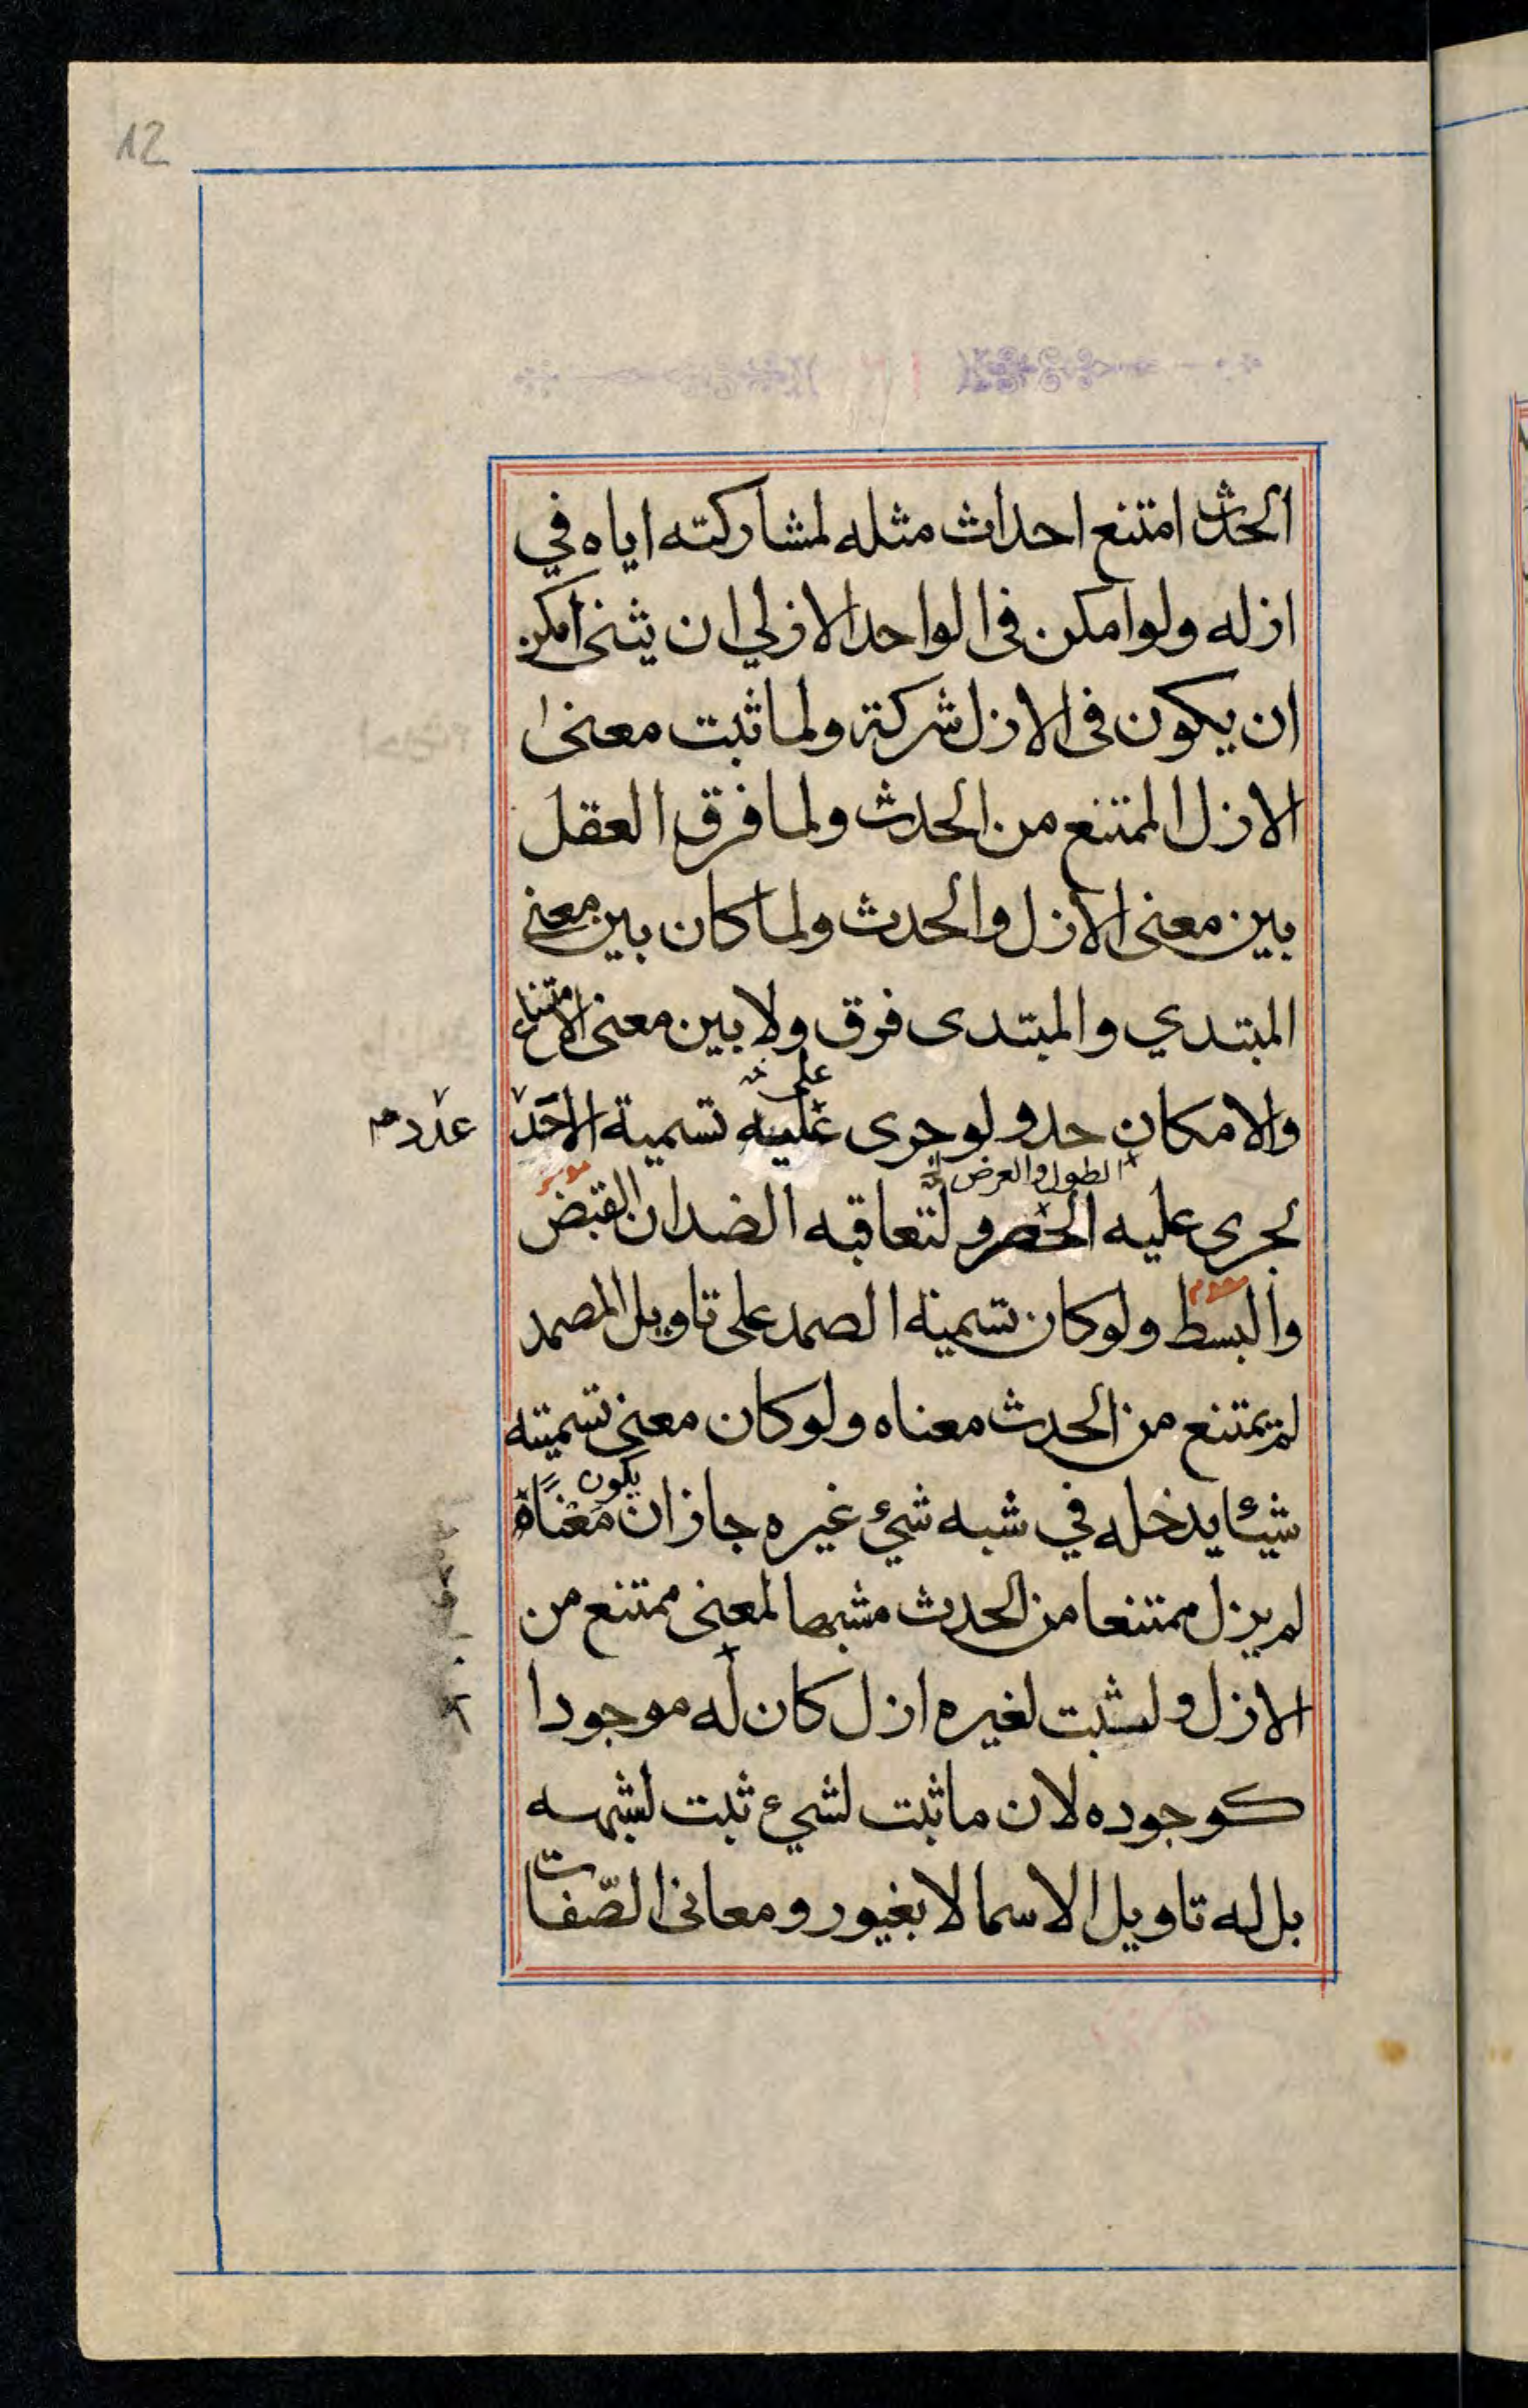 12
الحدث امتنع احداث مثله لمشاركته اياه في
ازله ولو امكن في الواحد الازلي ان يثنى امكن
ان يكون في الازل شركة ولما ثبت معنى ا
الازل الممتنع من الحدث ولما فرق العقل
بين معنى الازل والحدث ولما كان بين معنى
المبتدي والمبتدى فرق ولا بين معنى الامتناع
على
والامكان حد ولو جرى عليه تسمية الاحد
عدد
الطول والعرض
لجرى عليه الحصر ولتعاقبه الضدان القبض
والبسط ولو كان تسمية الصمد على تاويل المصمد
لم يمتنع من الحدث معناه ولو كان معنى تسميته
يكون
شيئا يدخله في شبه شيء غيره جاز ان معناه
لم يزل ممتنعا من الحدث مشبها لمعنى ممتنع من
الازل ولثبت لغيره ازل كان له موجودا
كوجوده لان ما ثبت لشيء ثبت لشبهه
بل له تاويل الاسما لا بغيور ومعاني الصفات